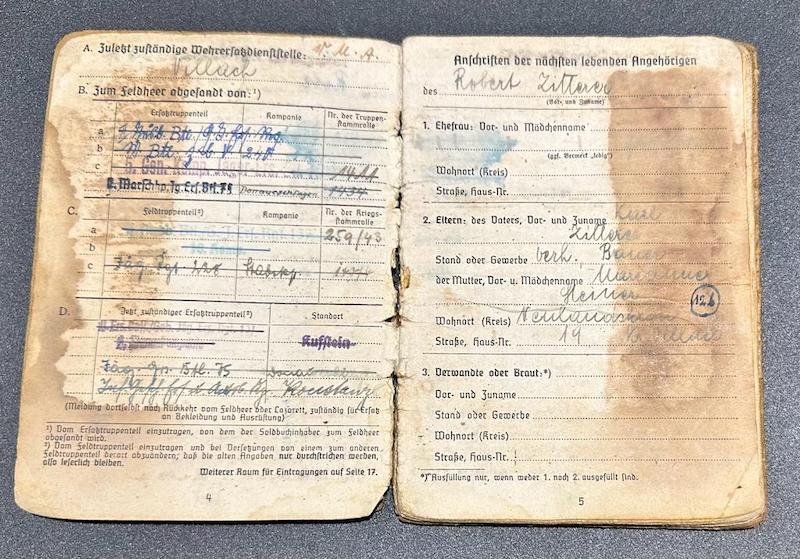 A. Zuletzt zuständige Wehrersatzdienststelle: W. M. A.
Villach
B. Zum Feldheer abgesandt von:¹)
Ersatztruppenteil
Kompanie
Nr. der Truppenstammrolle
a
b
c
1411
2. Marschkp. Jg. Ers. Btl. 75 Donaueschingen 1434
C. Feldtruppenteil²)
Kompanie
Nr. der Kriegsstammrolle
a
259/43
b
c Jäg. Rgt. 228 Stabskp.
D. Jetzt zuständiger Ersatztruppenteil²)
Standort
Kufstein
75
Konstanz
(Meldung dortselbst nach Rückkehr vom Feldheer oder Lazarett, zuständig für Ersatz
an Bekleidung und Ausrüstung)
¹) Vom Ersatztruppenteil einzutragen, von dem der Soldbuchinhaber zum Feldheer
abgesandt wird.
²) Vom Feldtruppenteil einzutragen und bei Versetzungen von einem zum anderen
Feldtruppenteil derart abzuändern; daß die alten Angaben nur durchstrichen werden,
also leserlich bleiben.
Weiterer Raum für Eintragungen auf Seite 17.
4
Anschriften der nächsten lebenden Angehörigen
des Robert Zitterer
(Vor- und Zuname)
1. Ehefrau: Vor- und Mädchenname
(ggf. Vermerk „ledig")
Wohnort (Kreis)
Straße, Haus-Nr.
2. Eltern: des Vaters, Vor- und Zuname Karl
Stand oder Gewerbe verh. Bauer
der Mutter, Vor- u. Mädchenname Marianne
126
Wohnort (Kreis)
Straße, Haus-Nr. 19
3. Verwandte oder Braut:*)
Vor- und Zuname
Stand oder Gewerbe
Wohnort (Kreis)
Straße, Haus-Nr.
*) Ausfüllung nur, wenn weder 1. noch 2. ausgefüllt sind.
5